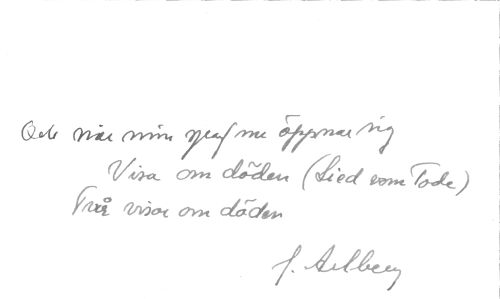 Och när min graf mer öppnar sig
Visa om döden (Lied vom Tode)
Två visor om döden
J.